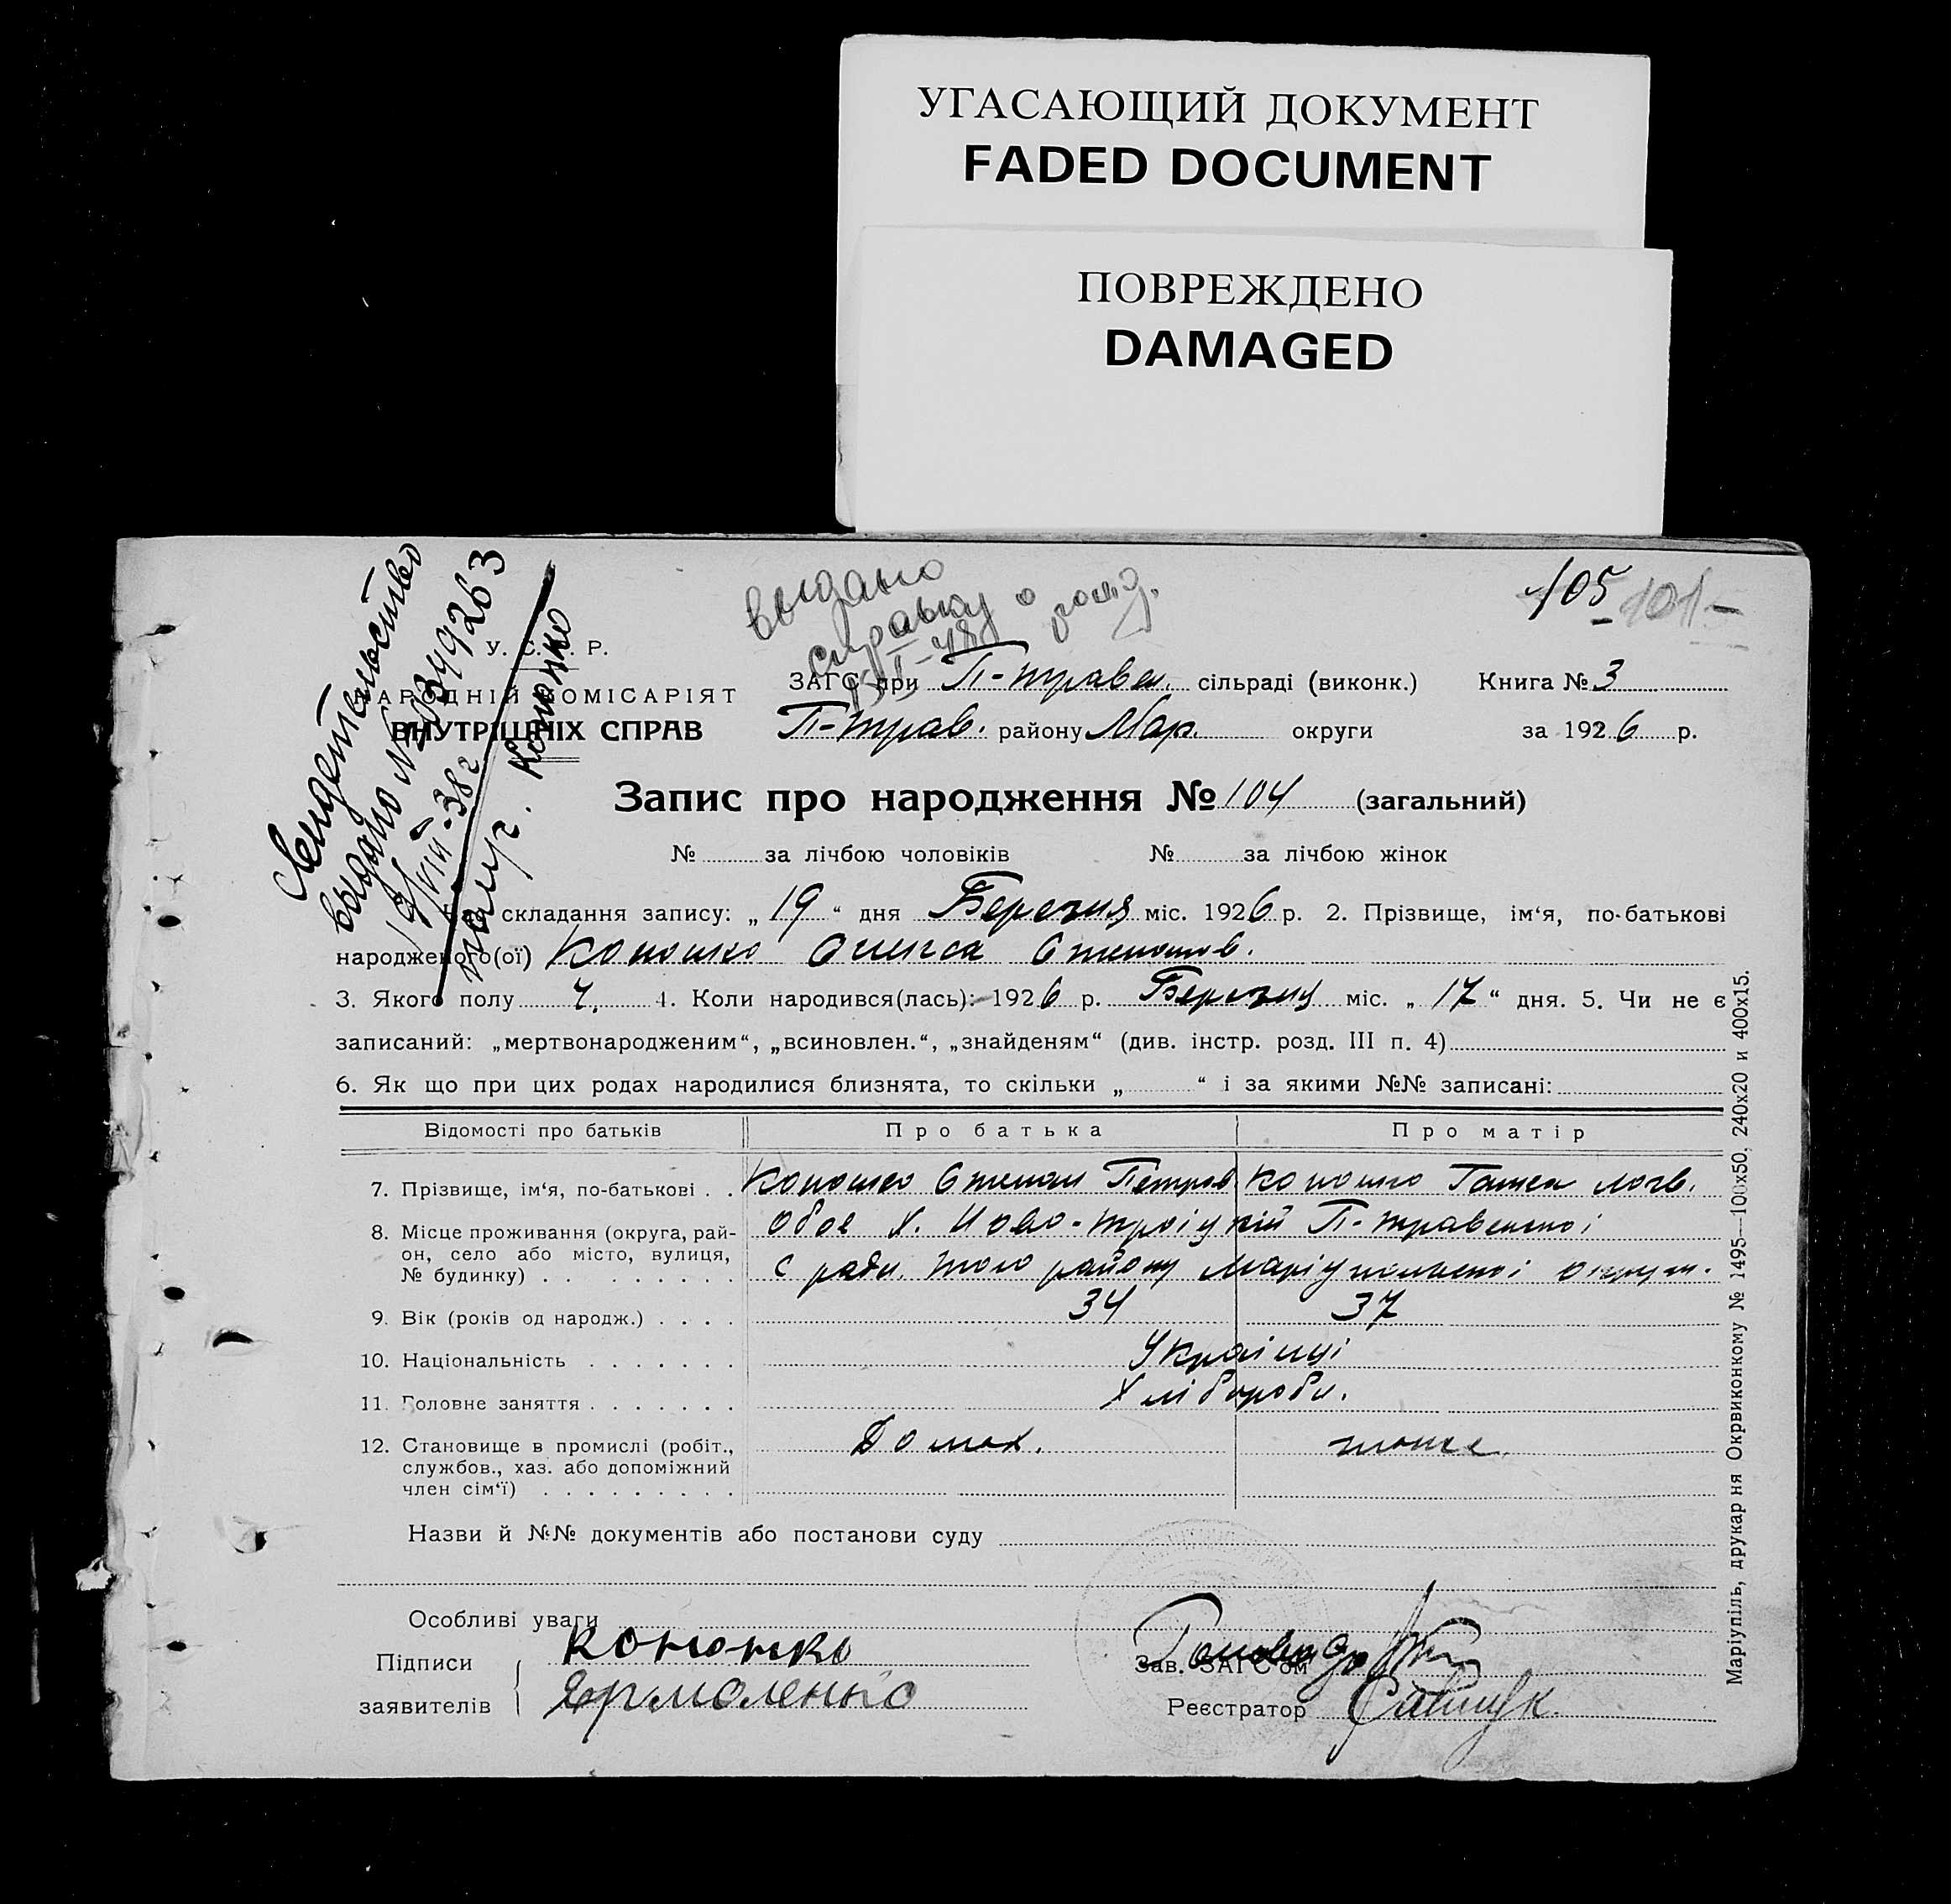 УГАСАЮЩИЙ ДОКУМЕНТ
FADED DOCUMENT
ПОВРЕЖДЕНО
DAMAGED
105 101
Свидетельство
выдано № 0349263
VIII-38 г.
Кононко
выдано
справку о рожд.
У. С. Р. Р.
НАРОДНІЙ КОМІСАРІЯТ
ВНУТРІШНІХ СПРАВ
ЗАГС при П-травен. сільраді (виконк.) Книга № 3
П-трав. району Мар. округи за 1926 р.
Запис про народження № 104 (загальний)
№ за лічбою чоловіків № за лічбою жінок
складання запису: „19“ дня Березня міс. 1926 р. 2. Прізвище, ім‘я, по-батькові
народженого(ої) Кононко Олекса Степанов.
3. Якого полу Ч. 4. Коли народився(лась): 1926 р. Березня міс. „17“ дня. 5. Чи не є
записаний: „мертвонародженим“, „всиновлен.“, „знайденям“ (див. інстр. розд. III п. 4)
6. Як що при цих родах народилися близнята, то скільки „ “ і за якими №№ записані:
Відомості про батьків Про батька Про матір
7. Прізвище, ім‘я, по-батькові . . Кононко Степан Петров Кононко Ганна Логв.
8. Місце проживання (округа, рай-
он, село або місто, вулиця,
№ будинку) . . . . . . . . .
обоє х. Ново-Троіцкій П-травенскоі
с ради. того району Маріупільскоі округи.
9. Вік (років од народж.) . . . . 34 37
10. Національність . . . . . . . Українці
11. Головне заняття . . . . . . . Хлібороби.
12. Становище в промислі (робіт., Домох. тоже
службов., хаз. або допоміжний
член сім‘ї) . . . . . . . . .
Назви й №№ документів або постанови суду
Особливі уваги
Підписи Кононко
Зав. ЗАГС‘ом
заявителів Ярмоленко
Реєстратор Савчук
Маріупіль, друкарня Окрвиконкому № 1495—100х50, 240х20 и 400х15.